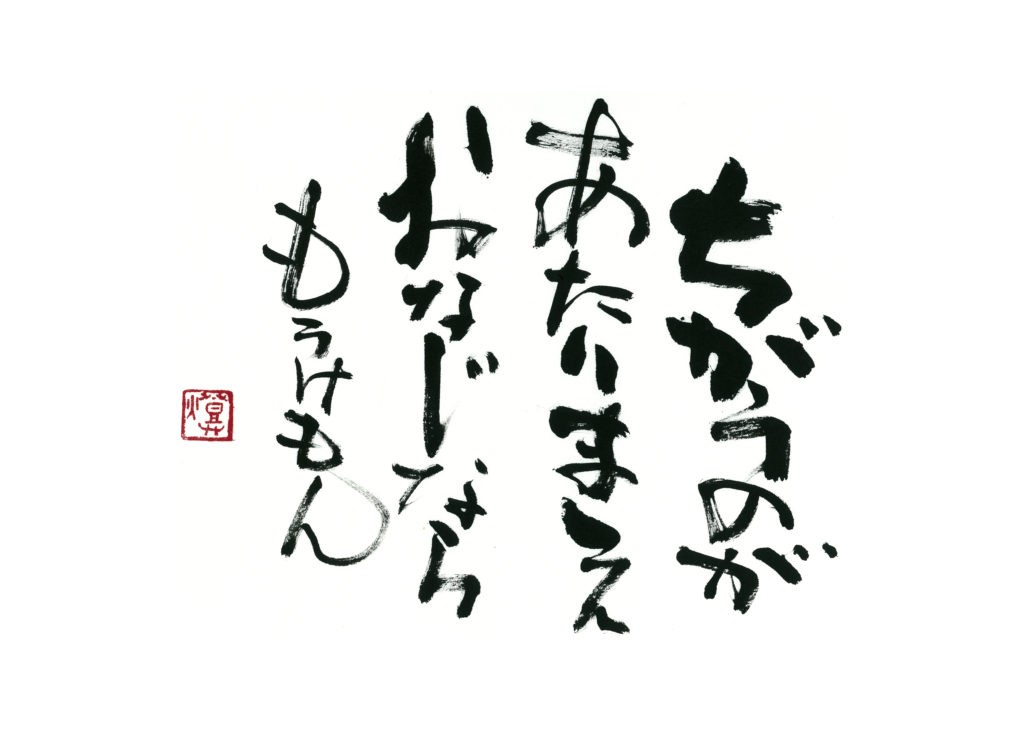 ちがうのが
あたりまえ
おなじなら
もうけもん